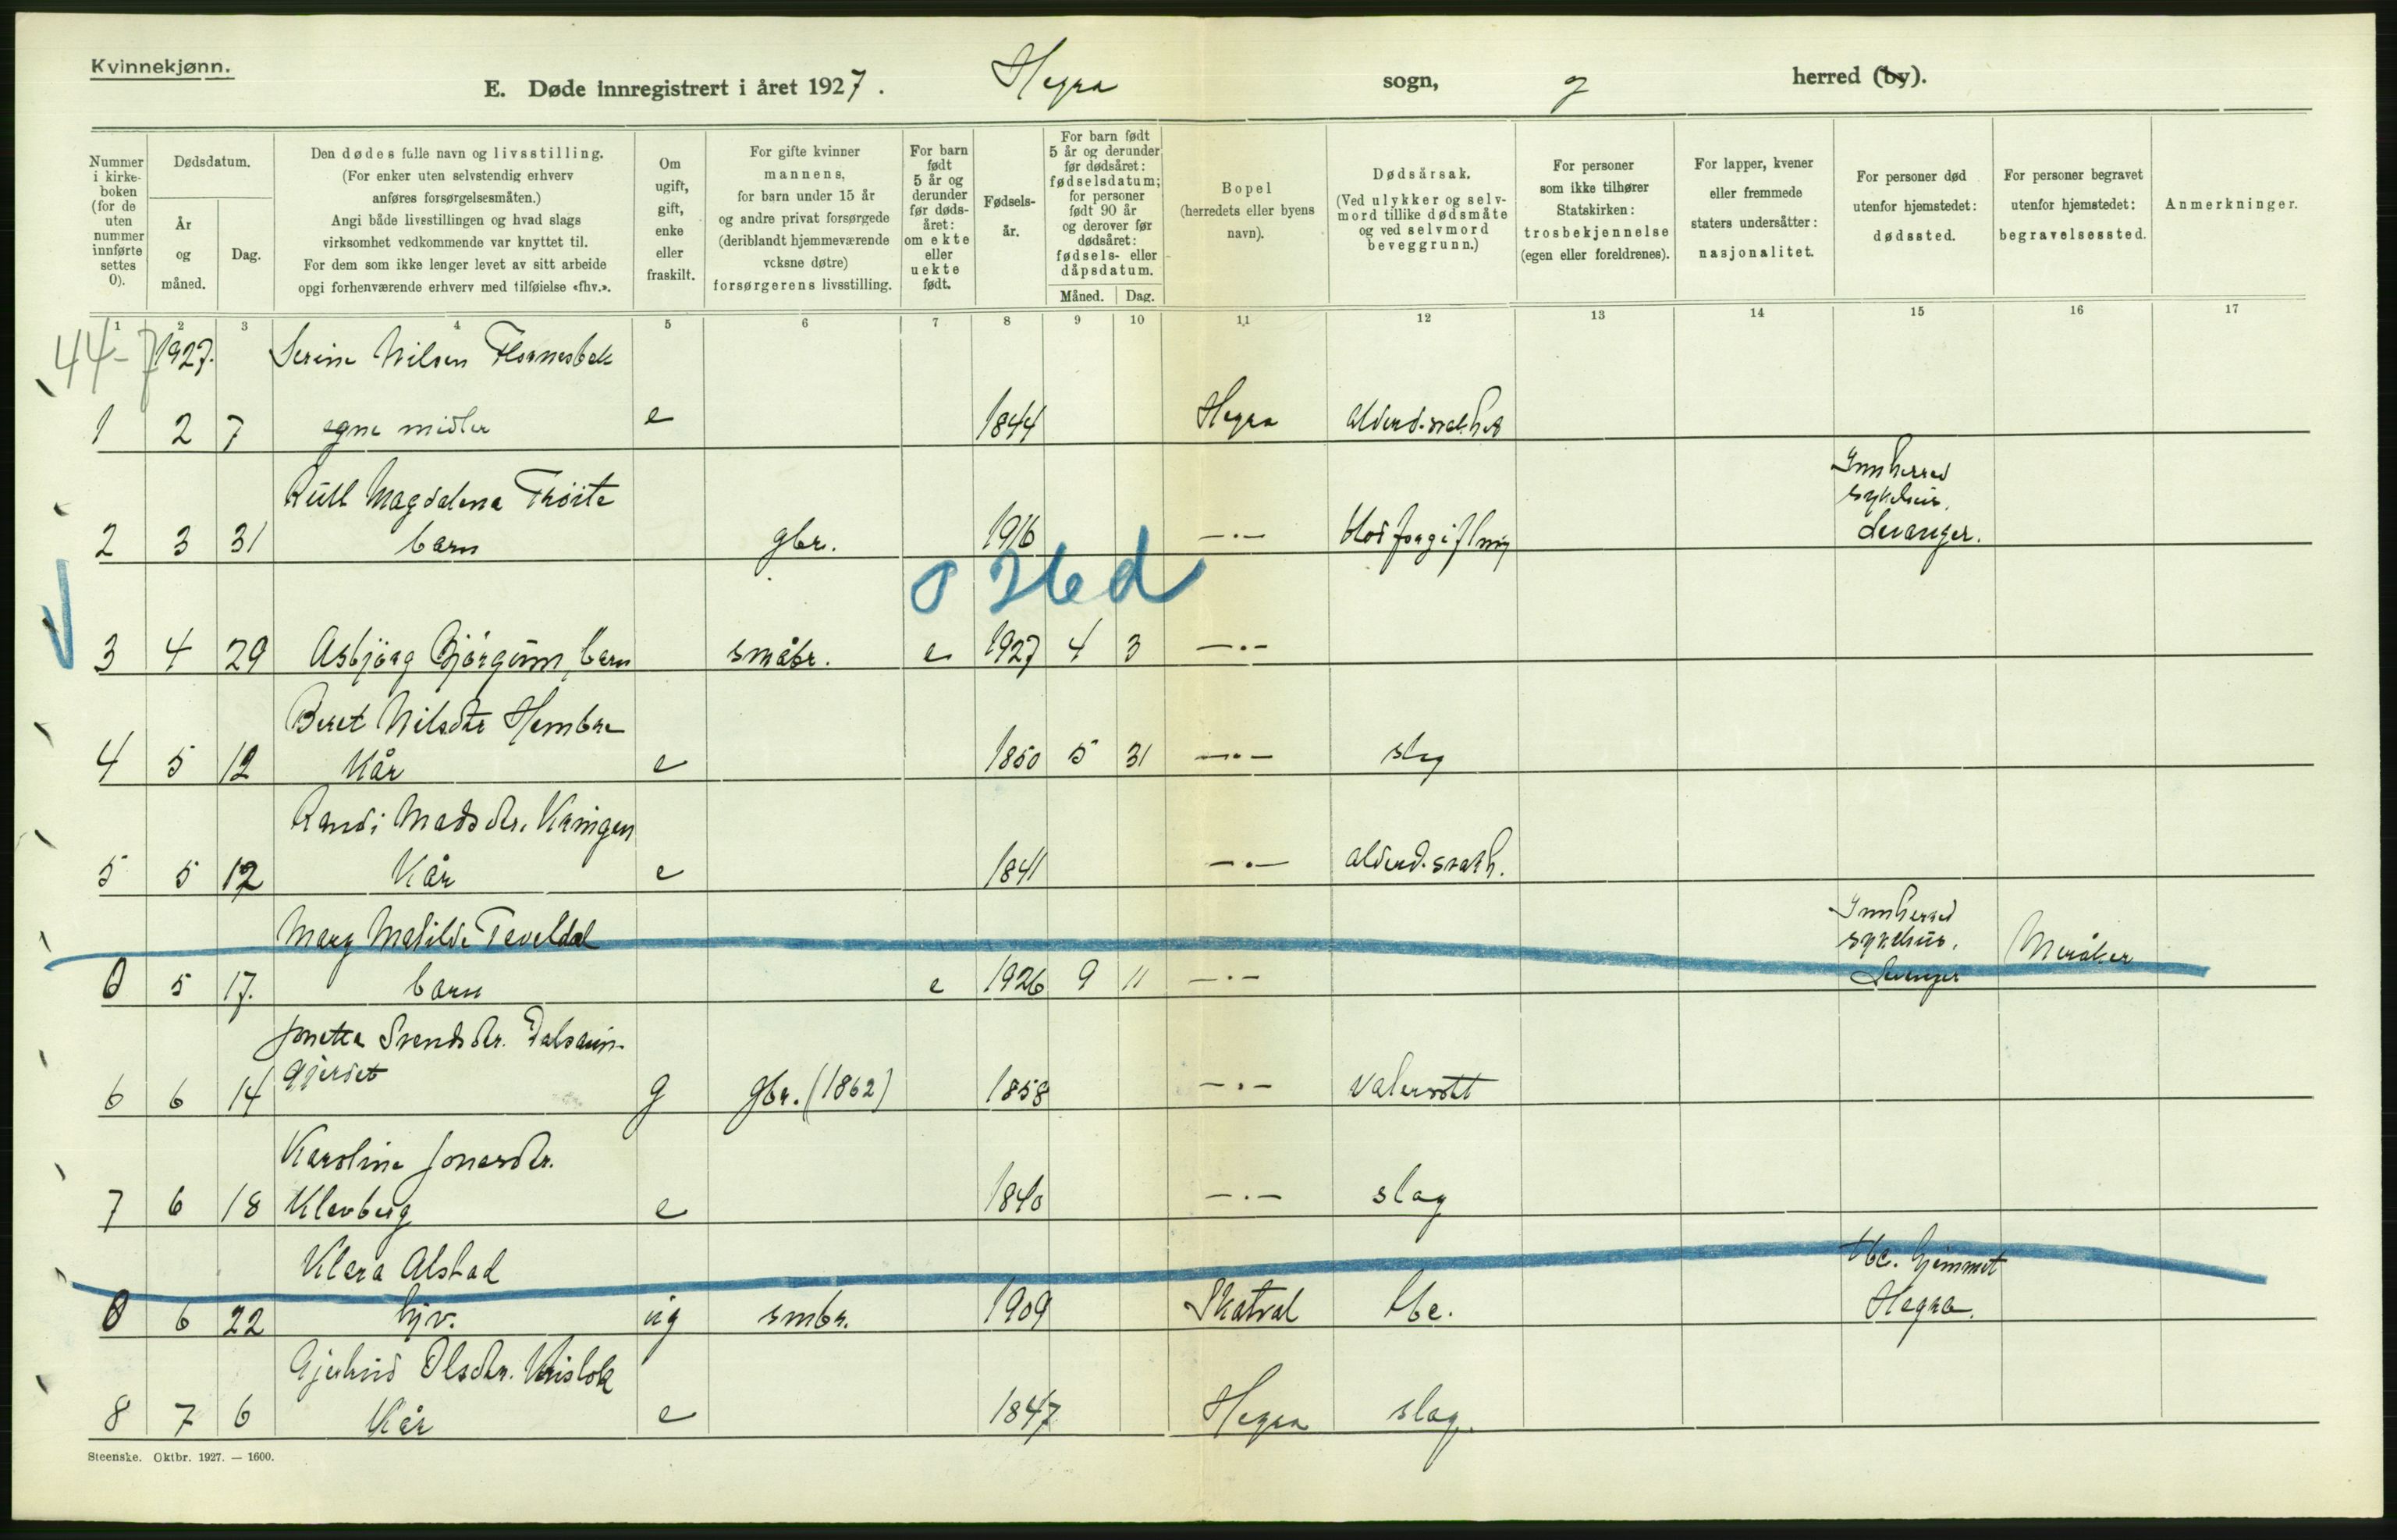 Kvinnekjønn.
E. Døde innregistrert i året 1927. Hegra sogn, herred (by).
Nummer i kirkeboken (for de uten nummer innførte settes 0).
Dødsdatum.
År og måned.
Dag.
Den dødes fulle navn og livsstilling.
(For enker uten selvstendig erhverv
anføres forsørgelsesmåten.)
Angi både livsstillingen og hvad slags
virksomhet vedkommende var knyttet til.
For dem som ikke lenger levet av sitt arbeide
opgi forhenværende erhverv med tilføielse «fhv.».
Om ugift, gift, enke eller fraskilt.
For gifte kvinner
mannens,
for barn under 15 år
og andre privat forsørgede
(deriblandt hjemmeværende
voksne døtre)
forsørgerens livsstilling.
For barn født 5 år og derunder før dødsåret: om ekte eller uekte født.
Fødselsår.
For barn født
5 år og derunder
før dødsåret:
fødselsdatum;
for personer
født 90 år
og derover før
dødsåret:
fødsels- eller
dåpsdatum.
Måned. Dag.
Bopel
(herredets eller byens
navn).
Dødsårsak.
(Ved ulykker og selv-
mord tillike dødsmåte
og ved selvmord
beveggrunn.)
For personer
som ikke tilhører
Statskirken:
trosbekjennelse
(egen eller foreldrenes).
For lapper, kvener
eller fremmede
staters undersåtter:
nasjonalitet.
For personer død
utenfor hjemstedet:
dødssted.
For personer begravet
utenfor hjemstedet:
begravelsessted.
Anmerkninger.
1 2 3 4 5 6 7 8 9 10 11 12 13 14 15 16 17
44-7 1927. Serine Nilsen
1 2 7 egne midler e 1844 Hegra
Magdalena Tröite Innherred
sykehus,
2 3 31 barn gbr. 1916 —·— Blodforgiftning Levanger.
3 4 29 Asbjörg Bjørgum, barn småbr. e 1927 4 3 —·—
Beret Nilsdtr Hembre
4 5 12 Kår e 1850 5 31 —·— slag
Randi Madsdtr. Kringen
5 5 12 Kår e 1841 —·— alderd.svakh.
Marg Matilde Teveldal Innherred
sykehus, Meråker
0 5 17. barn e 1926 9 11 —·— Levanger
Jonetta Svendsdtr.
6 6 14 Gjerdet g gbr. (1862) 1858 —·— Vatersott
Karoline Jonasdtr.
7 6 18 Klevberg e 1840 —·— slag
Klara Alstad tbc. hjemmet
0 6 22 hjv. ug smbr. 1909 Skatval tbc. Hegra.
Olsdtr.
8 7 6 Kår e 1847 Hegra slag.
Steenske. Oktbr. 1927. — 1600.